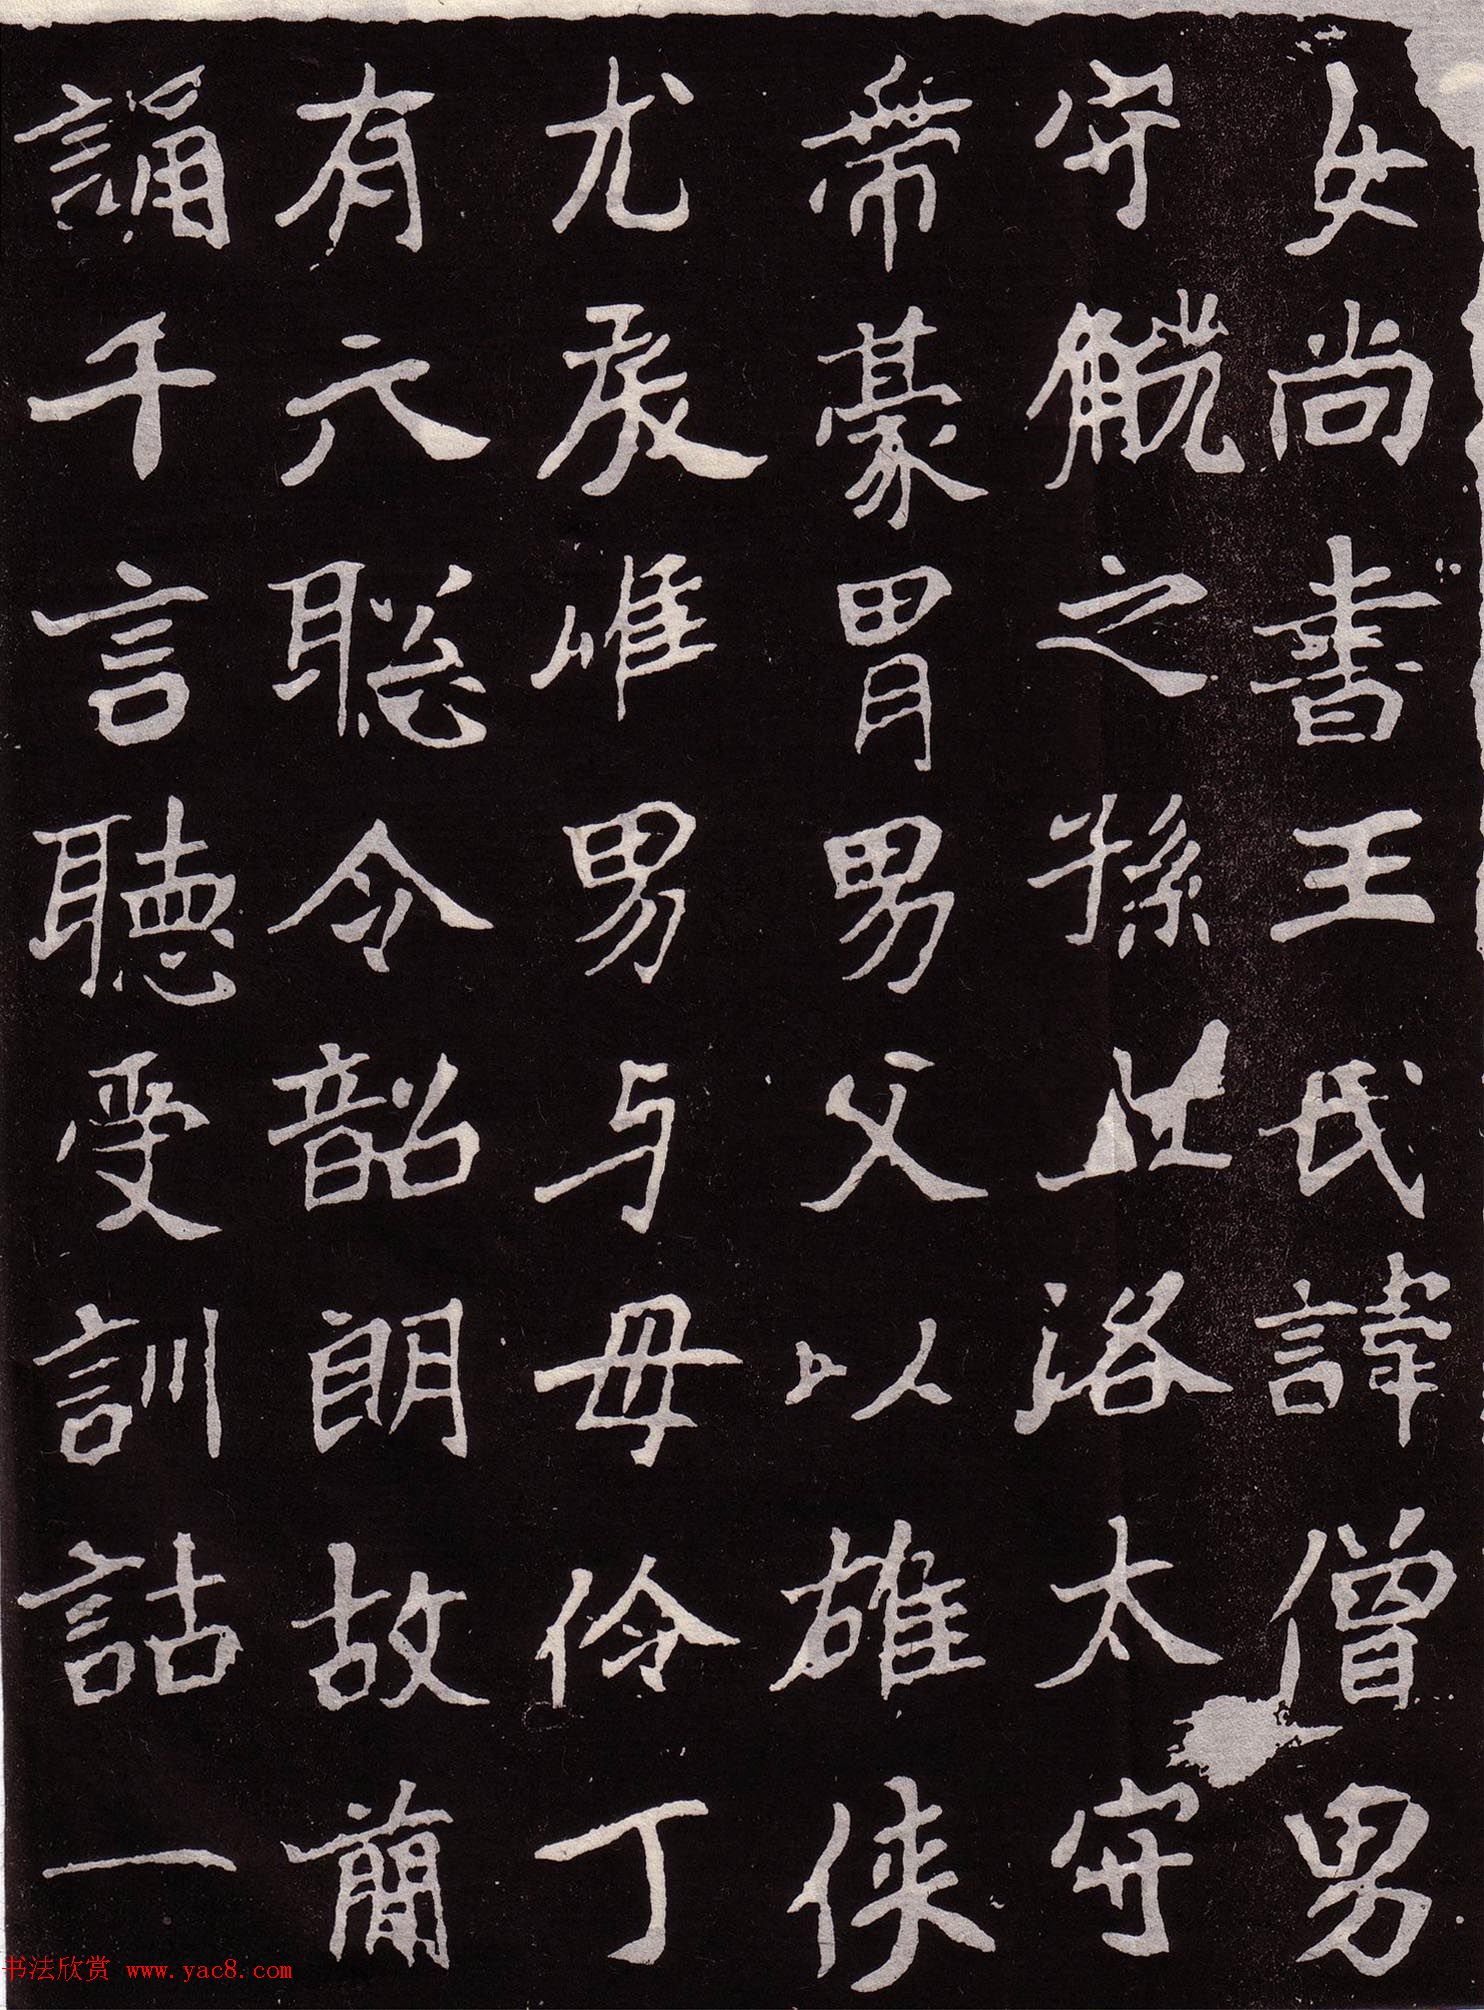 女尚書王氏諱僧男
守觥之孫洛太守
帶豪胃男父以雄侠
尤辰唯男与母伶丁
有六聡令韶朗故簡
誦千言聽受訓詁一
书法欣赏 www.yac8.com